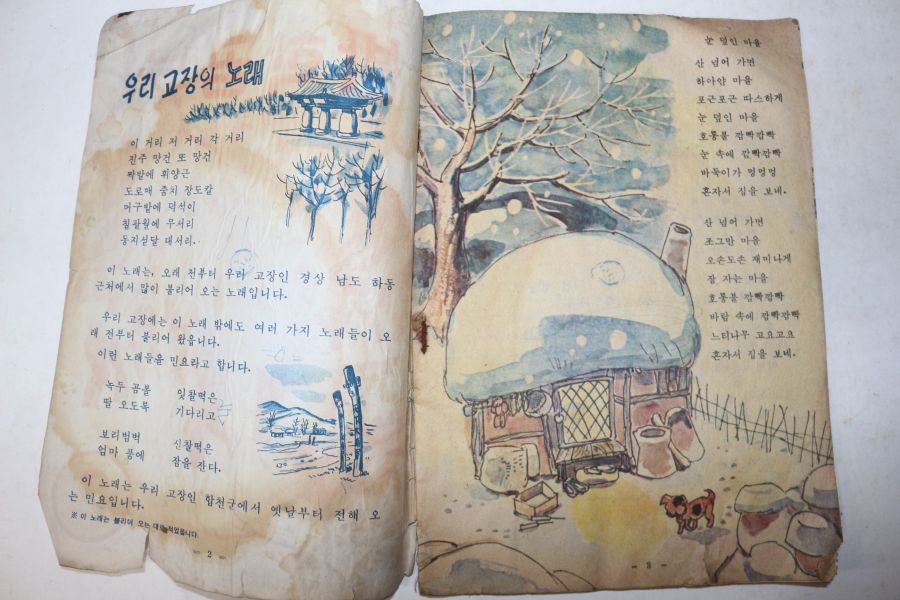 우리 고장의 노래
이 거리 저 거리 각 거리
진주 망건 또 망건
짝발에 휘양근
도로매 줌치 장도칼
머구밭에 덕석이
칠팔월에 무서리
동지섣달 대서리.
이 노래는, 오래 전부터 우리 고장인 경상 남도 하동
근처에서 많이 불리어 오는 노래입니다.
우리 고장에는 이 노래 밖에도 여러 가지 노래들이 오
래 전부터 불리어 왔읍니다.
이런 노래들을 민요라고 합니다.
녹두 곰볼
딸 오도록
잇찰떡은
기다리고
보리범벅
엄마 품에
신찰떡은
잠을 잔다.
이 노래는 우리 고장인 합천군에서 옛날부터 전해 오
는 민요입니다.
※ 이 노래는 불리어 오는 대로 적었읍니다.
2
눈 덮인 마을
산 넘어 가면
하아얀 마을
포근포근 따스하게
눈 덮인 마을
호롱불 깜빡깜빡
눈 속에 깜빡깜빡
바둑이가 멍멍멍
혼자서 집을 보네.
산 넘어 가면
조그만 마을
오손도손 재미나게
잠 자는 마을
호롱불 깜빡깜빡
바람 속에 깜빡깜빡
느티나무 고요고요
혼자서 집을 보네.
- 3 -